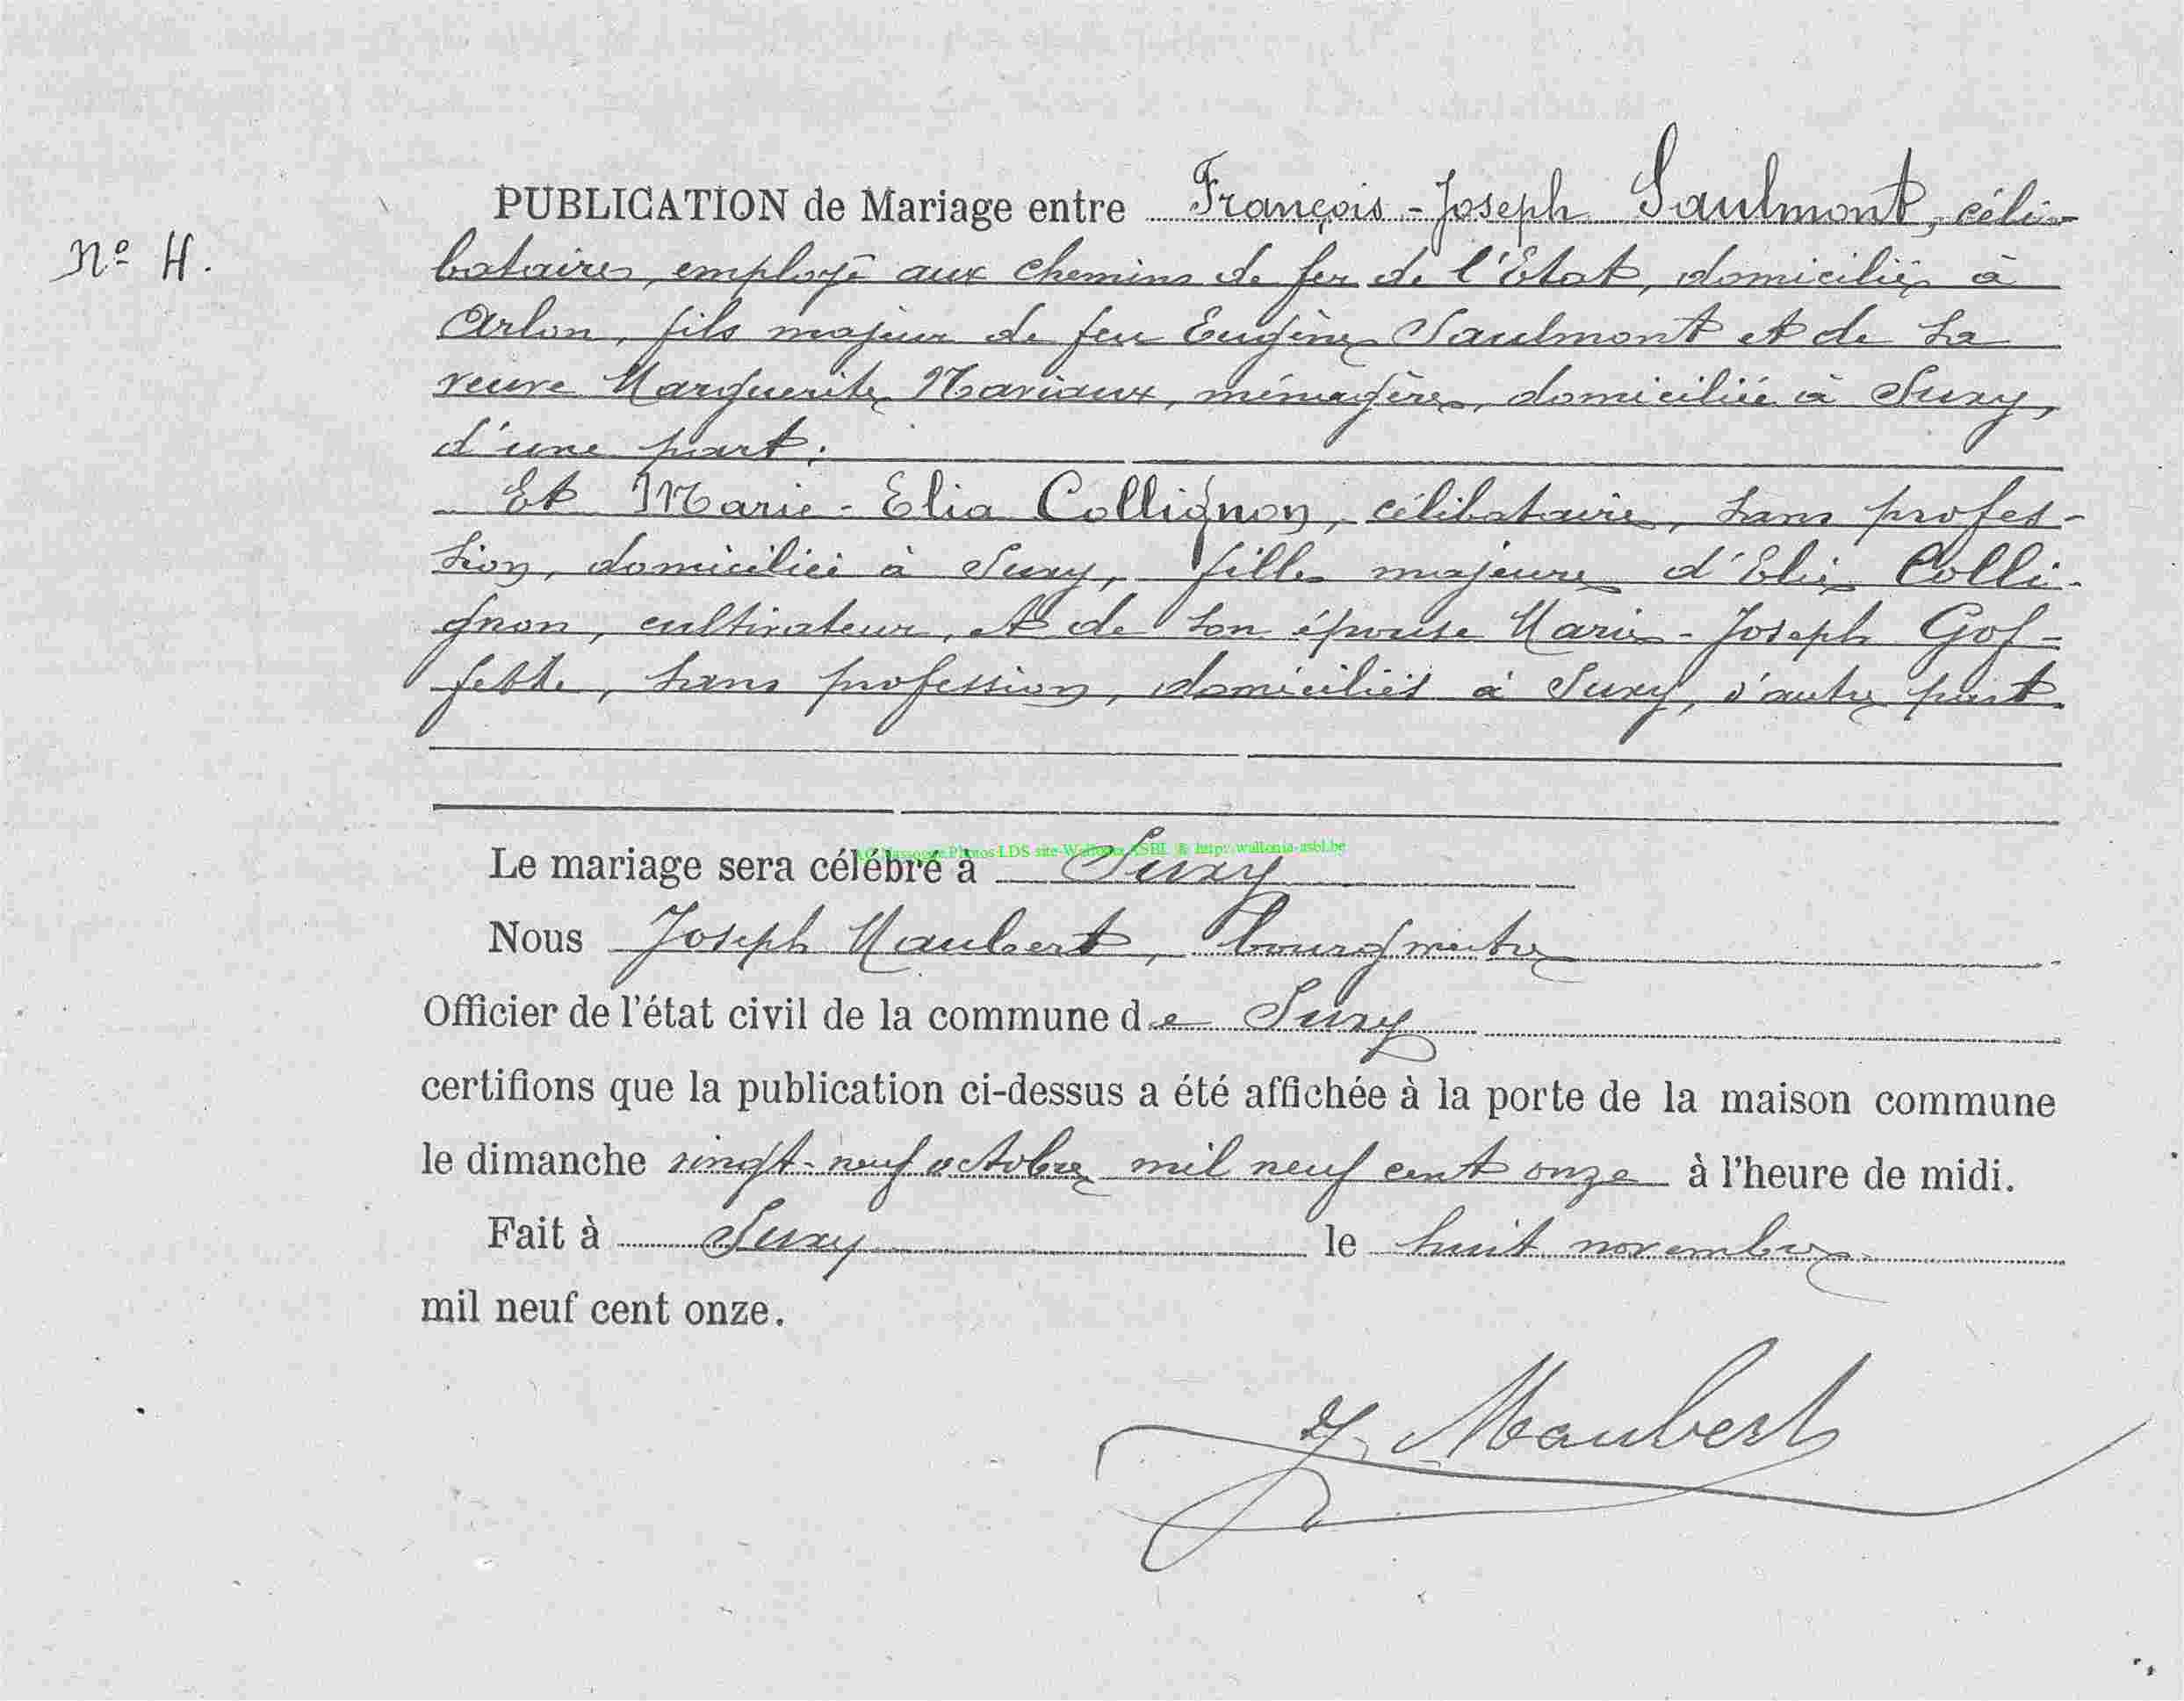 PUBLICATION de Mariage entre François-Joseph Saulmont, céli-
Nº 4.
bataire, employé aux chemins de fer de l'Etat, domicilié à
Arlon, fils majeur de feu Eugène Saulmont et de sa
veuve Marguerite Mariaux, ménagère, domiciliée à Suxy,
d'une part;
Et Marie-Elia Collignon, célibataire, sans profes-
sion, domiciliée à Suxy, fille majeure d'Elie Colli-
gnon, cultivateur, et de son épouse Marie-Joseph Gof-
fette, sans profession, domiciliés à Suxy, d'autre part.
Le mariage sera célébré à Suxy
Photos LDS site Wallonia ASBL & http://wallonia-asbl.be
Nous Joseph Maubert, bourgmestre
Officier de l'état civil de la commune de Suxy
certifions que la publication ci-dessus a été affichée à la porte de la maison commune
le dimanche vingt-neuf octobre mil neuf cent onze à l'heure de midi.
Fait à Suxy le huit novembre
mil neuf cent onze.
J. Maubert